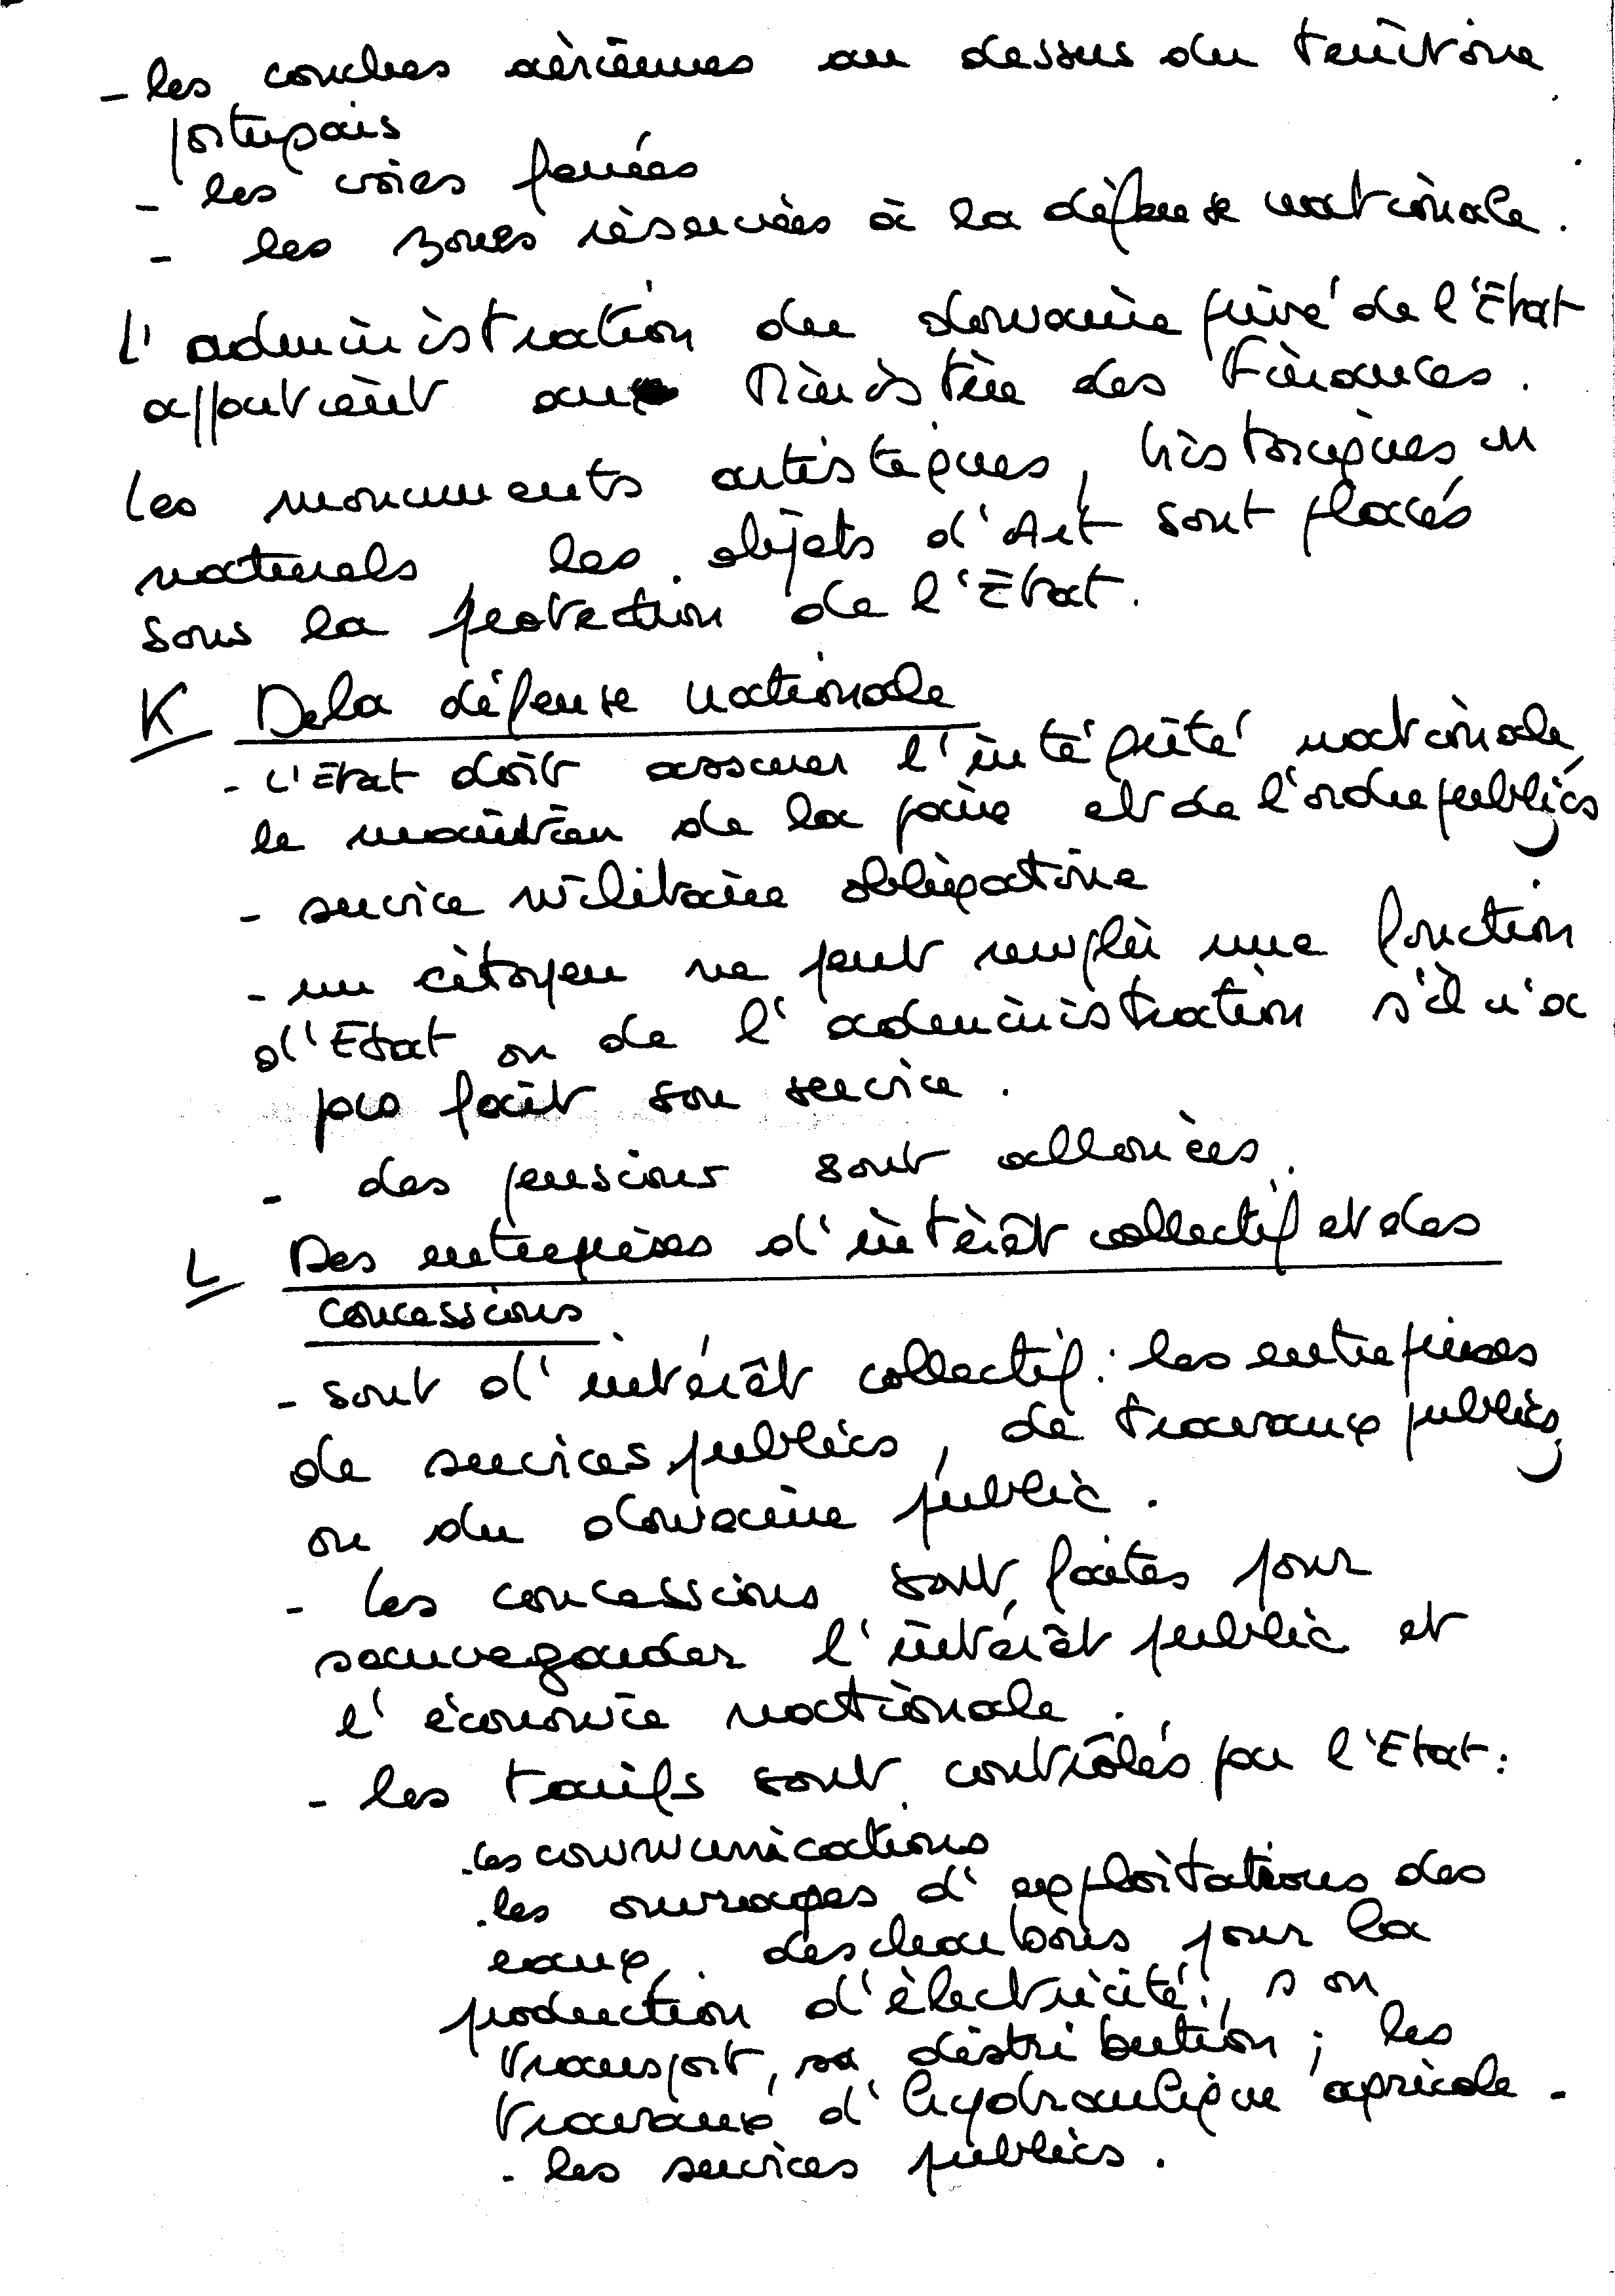 - les couches aériennes au dessus du territoire
portugais
- les voies ferrées
- les zones réservées à la défense nationale.
L'administration du domaine privé de l'État
appartient au Ministère des Finances.
Les monuments artistiques, historiques ou
naturels, les objets d'Art sont placés
sous la protection de l'État.
K De la défense nationale
- L'État doit assurer l'intégrité nationale,
le maintien de la paix et de l'ordre publics
- service militaire obligatoire
- un citoyen ne peut remplir une fonction
d'Etat ou de l'administration s'il n'a
pas fait son service.
- des pensions sont allouées.
L Des entreprises d'intérêt collectif et des
concessions
- sont d'intérêt collectif : les entreprises
de services publics, de travaux publics,
ou du domaine public.
- Les concessions sont faites pour
sauvegarder l'intérêt public et
l'économie nationale.
- les tarifs sont contrôlés par l'Etat :
- les communications
- les ouvrages d'exploitations des
eaux, des charbons pour la
production d'électricité, son
transport, sa distribution ; les
travaux d'hydraulique agricole -
- les services publics.